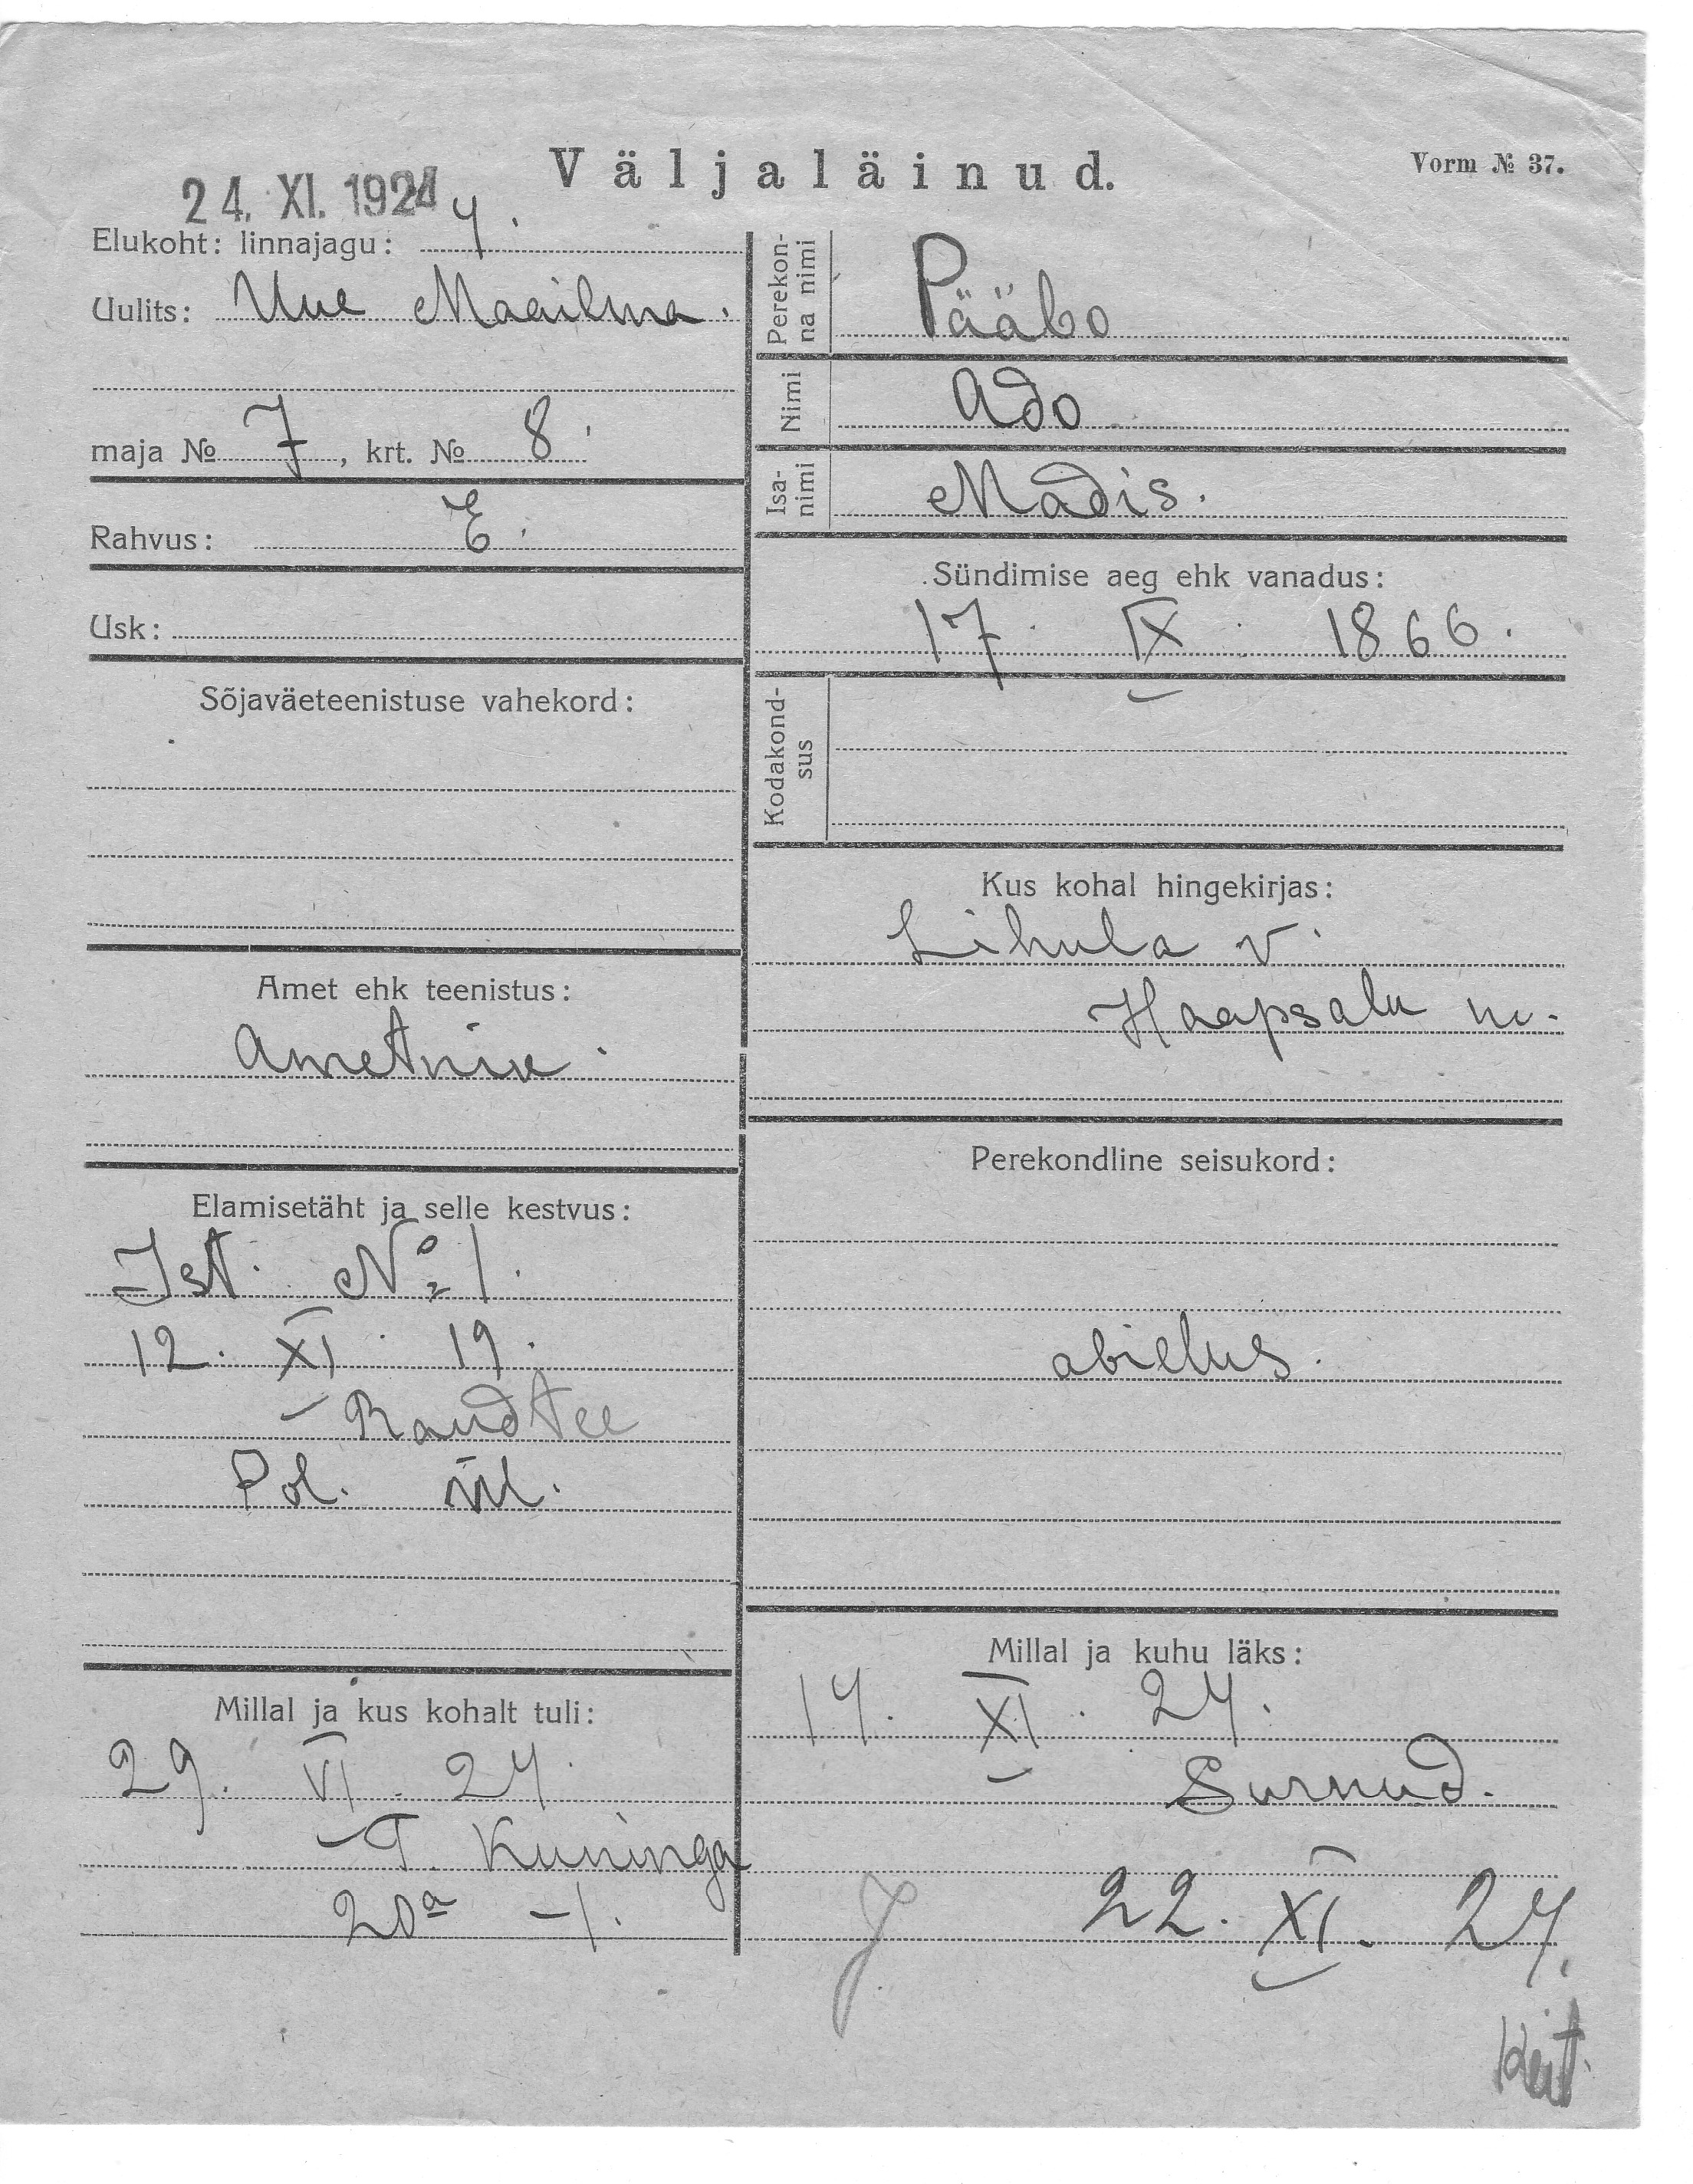 Väljaläinud.
Vorm № 37.
24. XI. 1924
Elukoht: linnajagu: 4.
Uulits: Uue Maailma.
maja № 7, krt. № 8.
Rahvus: E.
Usk:
Sõjaväeteenistuse vahekord:
Amet ehk teenistus:
Ametnik.
Elamisetäht ja selle kestvus:
Ist. № 1.
12. XI. 19.
Raudtee
Pol. ül.
Millal ja kus kohalt tuli:
29. VI. 24.
T. Kuninga
20a – 1.
Perekonna nimi
Pääbo
Nimi
Ado
Isanimi
Madis.
Sündimise aeg ehk vanadus:
17. IX. 1866.
Kodakondsus
Kus kohal hingekirjas:
Lihula v.
Haapsalu m.
Perekondline seisukord:
abielus.
Millal ja kuhu läks:
14. XI. 24.
Surnud.
22. XI. 24.